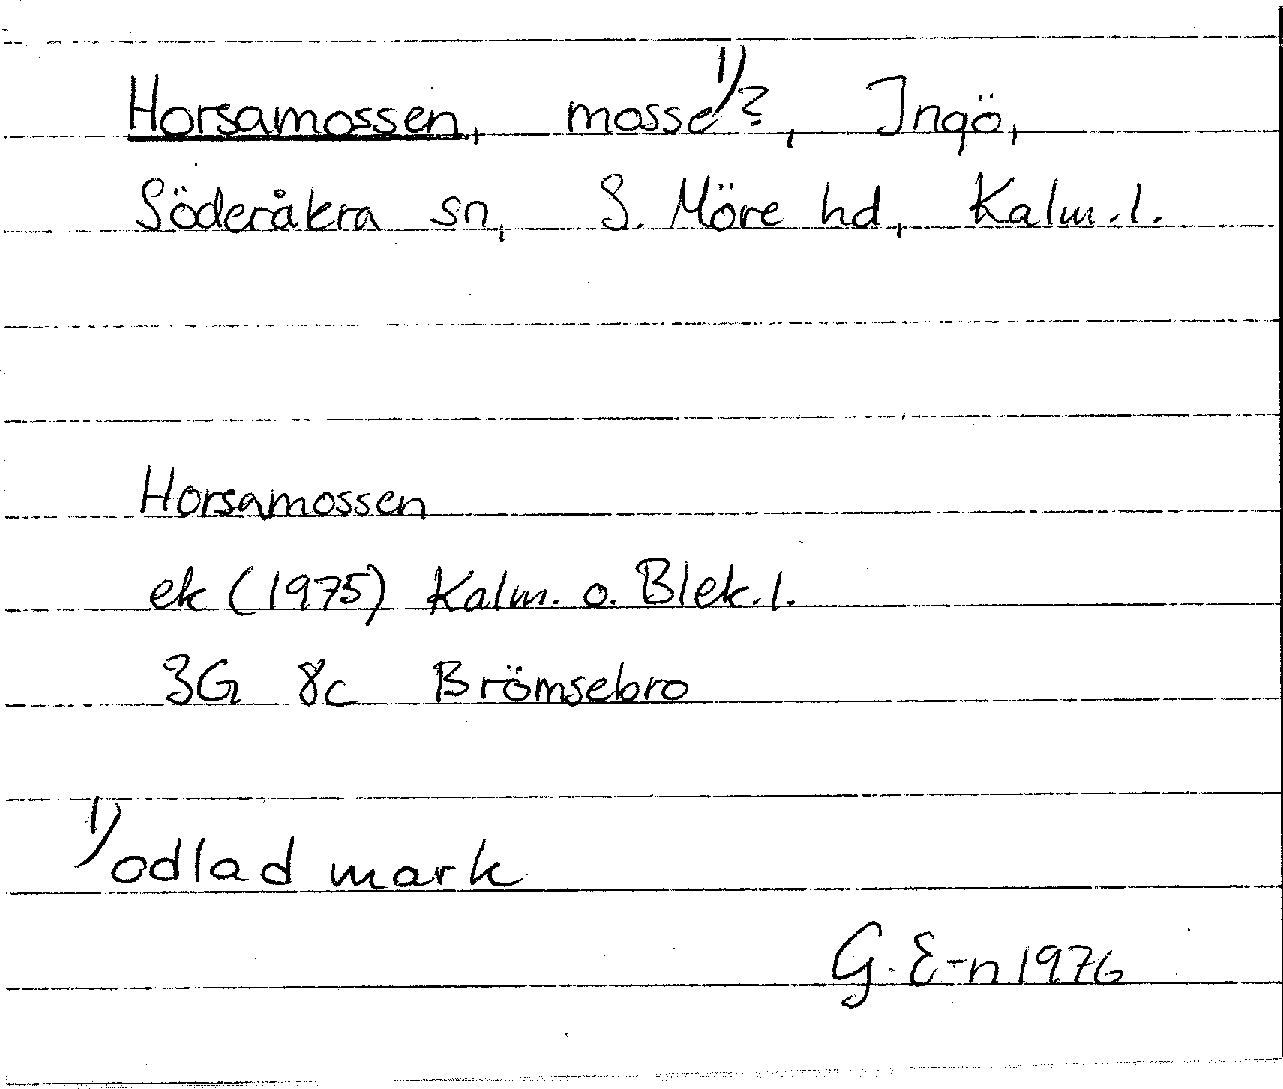 Horsamossen, mosse 1)?, Ingö,
Söderåkra sn, S. Möre hd, Kalm.l.
Horsamossen
ek (1975) Kalm. o. Blek.l.
3G 8c Brömsebro
1) odlad mark
G. E-n 1976